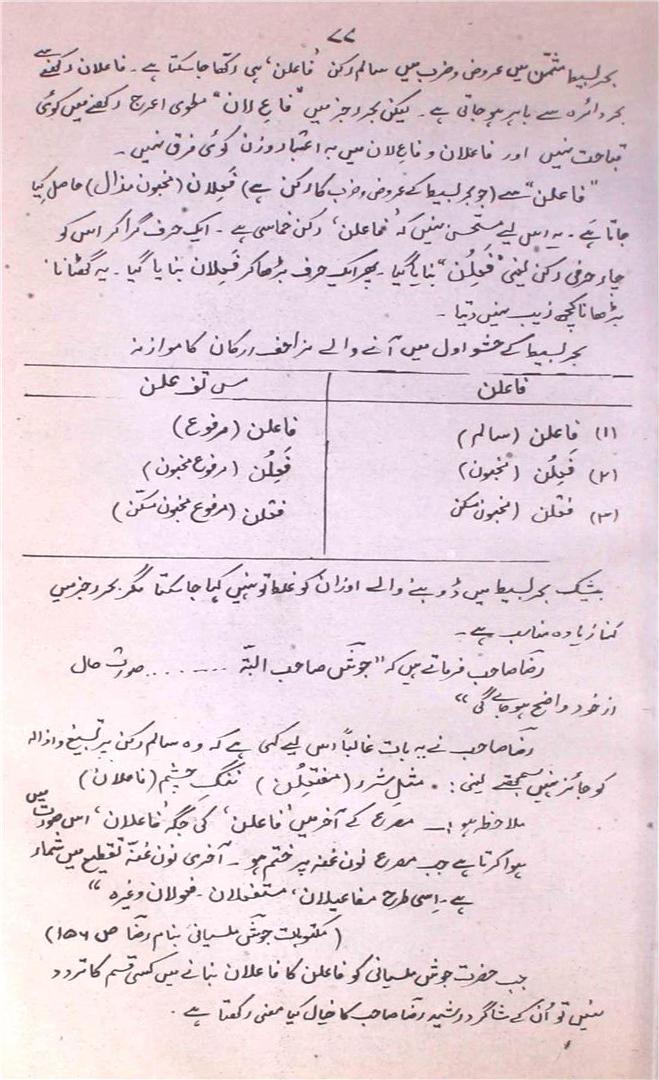 ۷۷
بحر بسیط مثمّن میں عروض و ضرب میں سالم رکن 'فاعلن' ہی رکھا جا سکتا ہے ۔ فاعلان رکھنے سے
بحر دائرہ سے باہر ہو جاتی ہے ۔ لیکن بحر رجز میں "فاع لان" مطوی اعرج رکھنے میں کوئی
قباحت نہیں اور فاعلان و فاع لان میں بہ اعتبار وزن کوئی فرق نہیں ۔
"فاعلن" سے (جو بحر بسیط کے عروض و ضرب کا رکن ہے) فَعِلان (مخبون مذال) حاصل کیا
جاتا ہے ۔ یہ اس لیے مستحسن نہیں کہ 'فاعلن' رکن خماسی ہے ۔ ایک حرف گرا کر اس کو
چار حرفی رکن یعنی "فَعِلُن" بنایا گیا ۔ پھر ایک حرف بڑھا کر فَعِلان بنایا گیا ۔ یہ گھٹانا
بڑھانا کچھ زیب نہیں دیتا ۔
بحر بسیط کے حشو اول میں آنے والے مزاحف ارکان کا موازنہ
فاعلن مس تف علن
(۱) فاعلن (سالم) فاعلن (مرفوع)
(۲) فَعِلُن (مخبون) فَعِلُن (مرفوع مخبون)
(۳) فعْلن (مخبون مسکن فعْلن (مرفوع مخبون مسکّن)
بیشک بحر بسیط میں ڈوبنے والے اوزان کو غلط تو نہیں کہا جا سکتا مگر بحر رجز میں
کہنا زیادہ مناسب ہے ۔
رضا صاحب فرماتے ہیں کہ "جوشؔ صاحب البتّہ ........ صورت حال
از خود واضح ہو جائے گی"
رضا صاحب نے یہ بات غالباً اس لیے کہی ہے کہ وہ سالم رکن پر تسبیغ و اذالہ
کو جائز نہیں سمجھتے یعنی : مثلِ شرر (مفتعِلُن) ننگِ چشم (فاعلان)
ملاحظہ ہو :ـ مصرع کے آخر میں 'فاعلن' کی جگہ 'فاعلان' اس صورت میں
ہوا کرتا ہے جب مصرع نون غنہ پر ختم ہو ۔ آخری نون غنّہ تقطیع میں شمار
ہے ۔ اِسی طرح مفاعیلان، مستفعلان ۔ فعولان وغیرہ"
(مکتوبات جوشؔ ملسیانی بنام رضا ص ۱۵۶)
جب حضرت جوشؔ ملسیانی کو فاعلن کا فاعلان بنانے میں کسی قسم کا تردد
نہیں تو اُن کے شاگرد رشید رضا صاحب کا خیال کیا معنی رکھتا ہے ۔